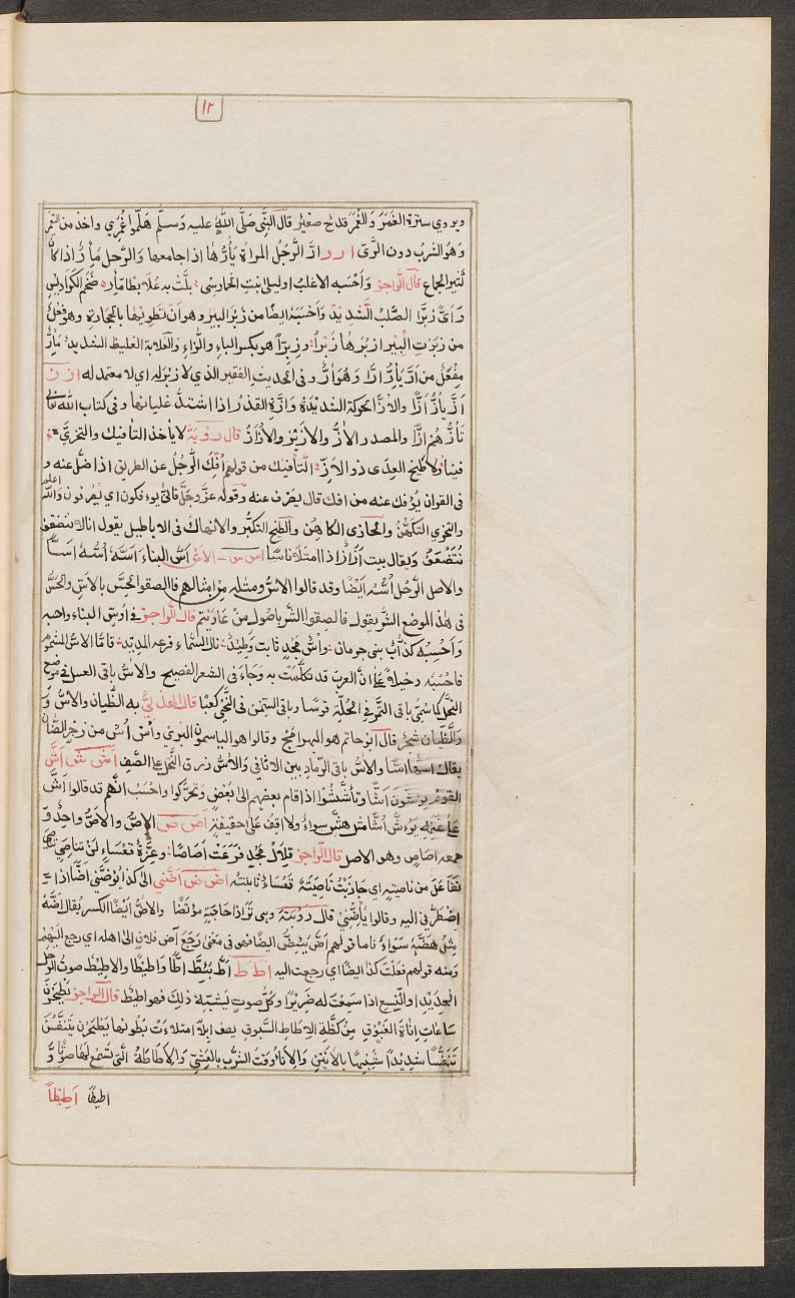 ١٢
ويروي سترة الغمر والغمر قدح صغير قال النبي صلى الله عليه وسلم هلموا غمري واخذ من الغمر
وهو الشرب دون الري ا ر ر ارّ الرجل المراة يأرها اذا جامعها والرجل مأر اذا كان
كثير الجماع قال الراجز وأحسبه الاغلب او ليلى بنت الحارس بلّت به علابطا مأره ضخم الكراديس
وأى زبرا الصلب الشديد وأحسبه ايضا من زبر البير وهو ان تطويها بالحجارة وهو فعل
من زبرت البير ازبرها زبرا وزبرا هو بكسر الباء والراء والعلابة الغليظ الشديد مأر
مفعل من ار يأر ارا وهو ار وفى الحديث الفقير الذي لا زبر له اي لا معتمد له ا ز ز
از يأز ازا والاز الحركة الشديدة وازت القدر اذا اشتد غليانها وفى كتاب الله تعالى
تأزهم ازا والمصدر الأز والازيز والازاز قال روبة لا يأخذ التأفيك والتحزي
فينا ولا طيخ العدى ذو الأز التأفيك من قولهم أفك الرجل عن الطريق اذا ضل عنه و
فى القران يؤفك عنه من افك قال يصرف عنه وقوله عز وجل فانى يوءفكون اي يصرفون والله اعلم
والتحزي التكهن والحازى الكاهن والطيخ التكبر والانهماك فى الاباطيل يقول انا لا نتضعف
نتضعف ويقال بيت أزز اذا امتلأ ناسا ا س س الاس أس البناء اسه أسه اسا
والاصل الرجل أسه ايضا وقد قالوا الاس ومثله من امثالهم فالصقوا الحس بالاس والحس
فى هذا الموضع الشر يقول فالصقوا الشر باصول من عاديتم قال الراجز فى اوس البناء واحبه
وأحسبه كذاب بنى حرمان واس مجد ثابت وطيد نال السماء فرعه المديد فاما الاس المشموم
فاحسبه دخيلا على ان العرب قد تكلمت به وجاء فى الشعر الفصيح والاس باقى العسل فى موضع
النحل كما سمي باقى التمر فى الجلة قوسا وباقى السمن فى النحي كعبا قال الهذلي به الظيان والاس و
والظيان شجر قال ابو حاتم هو البهرامج وقالوا هو الياسمون البري
يقال اسها اسا والاس باقى الرماد بين الاثافى والاس ذرق النحل على الصف ا ش ش أش
القوم يوءشون اشا وتأششوا اذا قام بعضهم الى بعض وتحركوا واحسب انهم قد قالوا أش
على غنمه يوءش أشا مثل هش سواء ولا اقف على حقيقته ا ص ص الاص والاص واحد و
جمعه اصاص وهو الاصل قال الراجز قلال مجد فرعت اصاصا وعزة قعساء لن تناصى
تفاعل من ناصيته اي جاذبت ناصيته قعساء ثابتة ا ض ض اضني الى كذا يوضني اضا اذا
اضطرني اليه وقالوا يأضني قال روبة وهى ترى ذا حاجة مؤتضا والاض ايضا الكسر يقال اضه
مثل هضه سواء فاما قولهم اض يئيض ايضا فهو فى معنى رجع آض فلان الى اهله اي رجع اليهم
ومنه قولهم فعلت كذا ايضا اي رجعت اليه ا ط ط اط يئط اطا واطيطا والاطيط صوت الرحل
الجديد والنسع اذا سمعت له صريرا وكل صوت يشبه ذلك فهو اطيط قال الراجز يطحرن
ساعات انا الغبوق من كظة الاطاطة السبوق يصف ابلا امتلاءت بطونها يطحرن يتنفسن
تنفسا شديدا شبيها بالانين والانا وقت الشرب بالعشي والاطاطة التى تسمع لها صوتا و
اطيطا اطيطا